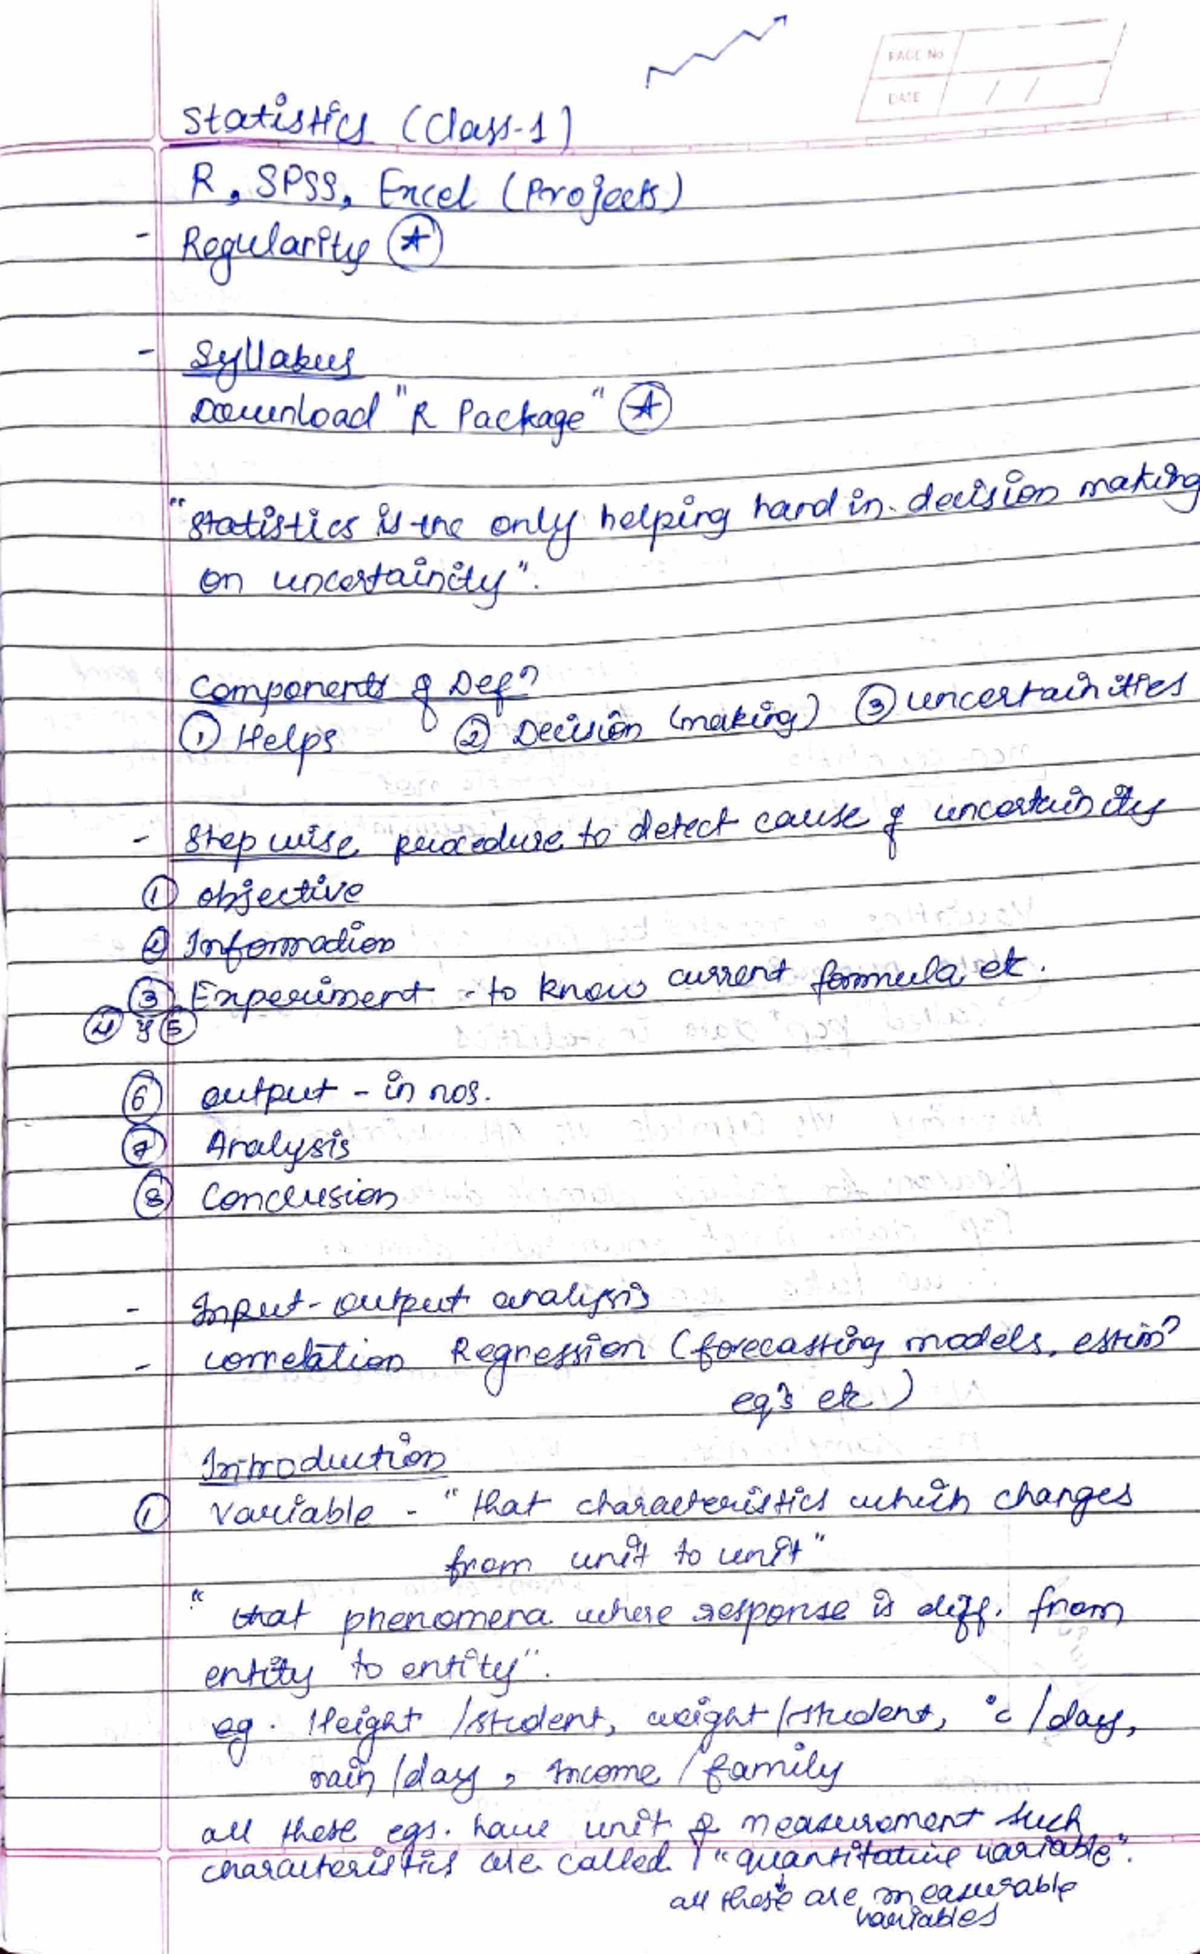 PAGE No
DATE / /
Statistics (Class-1)
R, SPSS, Excel (Projects)
- Regularity
- Syllabus
Download "R Package"
"Statistics is the only helping hand in decision making
on uncertainity".
Components of Defn
① Helps ② Decision (making) ③ uncertainities
- Step wise procedure to detect cause of uncertainity
① objective
② Information
③ Experiment - to know current formula etc.
④ & ⑤
⑥ output - in nos.
⑦ Analysis
⑧ Conclusion
- Input-output analysis
- correlation Regression (forecasting models, estimn
eqns etc)
Introduction
① Variable - "that characteristics which changes
from unit to unit"
"that phenomena where response is diff. from
entity to entity".
eg. Height /student, weight/student, °c/day,
rain/day, Income/family
all these egs. have unit of measurement such
characteristics are called "quantitative variable".
all these are measurable
variables